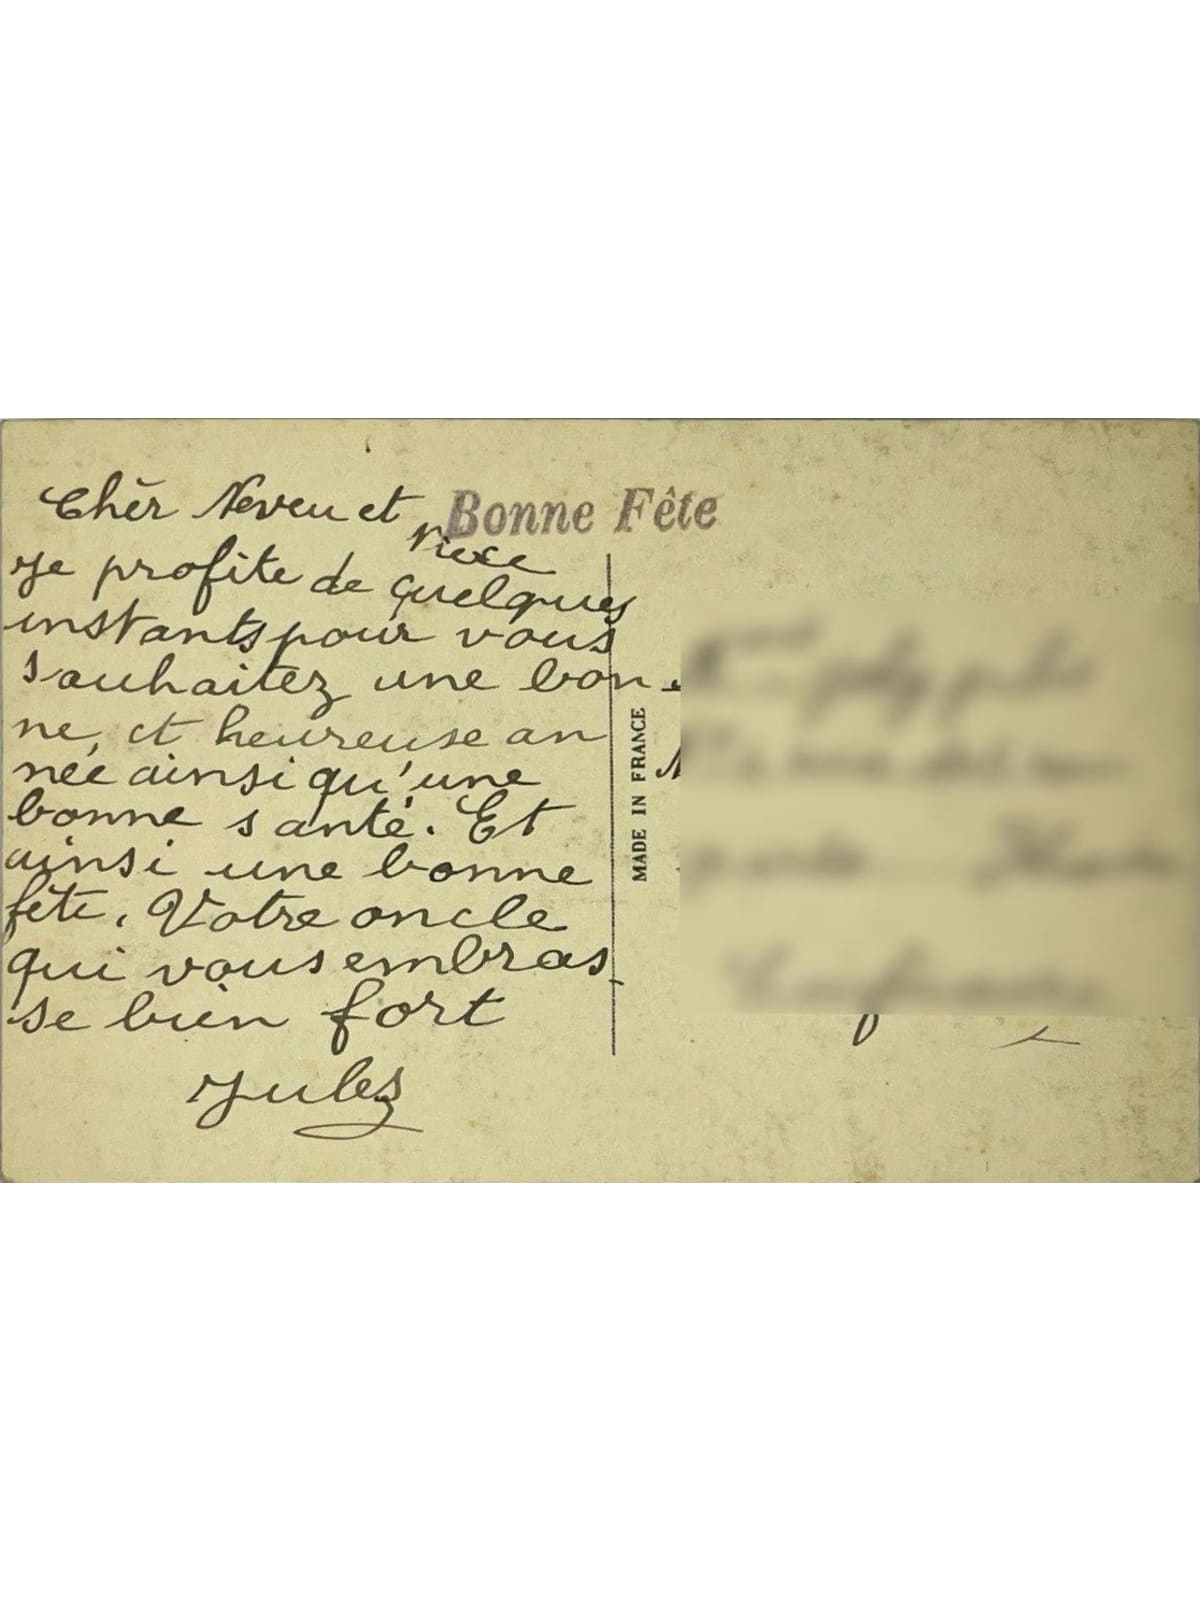 Chèr Neveu et
Niece
Bonne Fête
Je profite de quelques
instants pour vous
souhaitez une bon-
ne, et heureuse an
née ainsi qu'une
bonne santé. Et
ainsi une bonne
fête. Votre oncle
qui vous embras-
se bien fort
Jules
MADE IN FRANCE